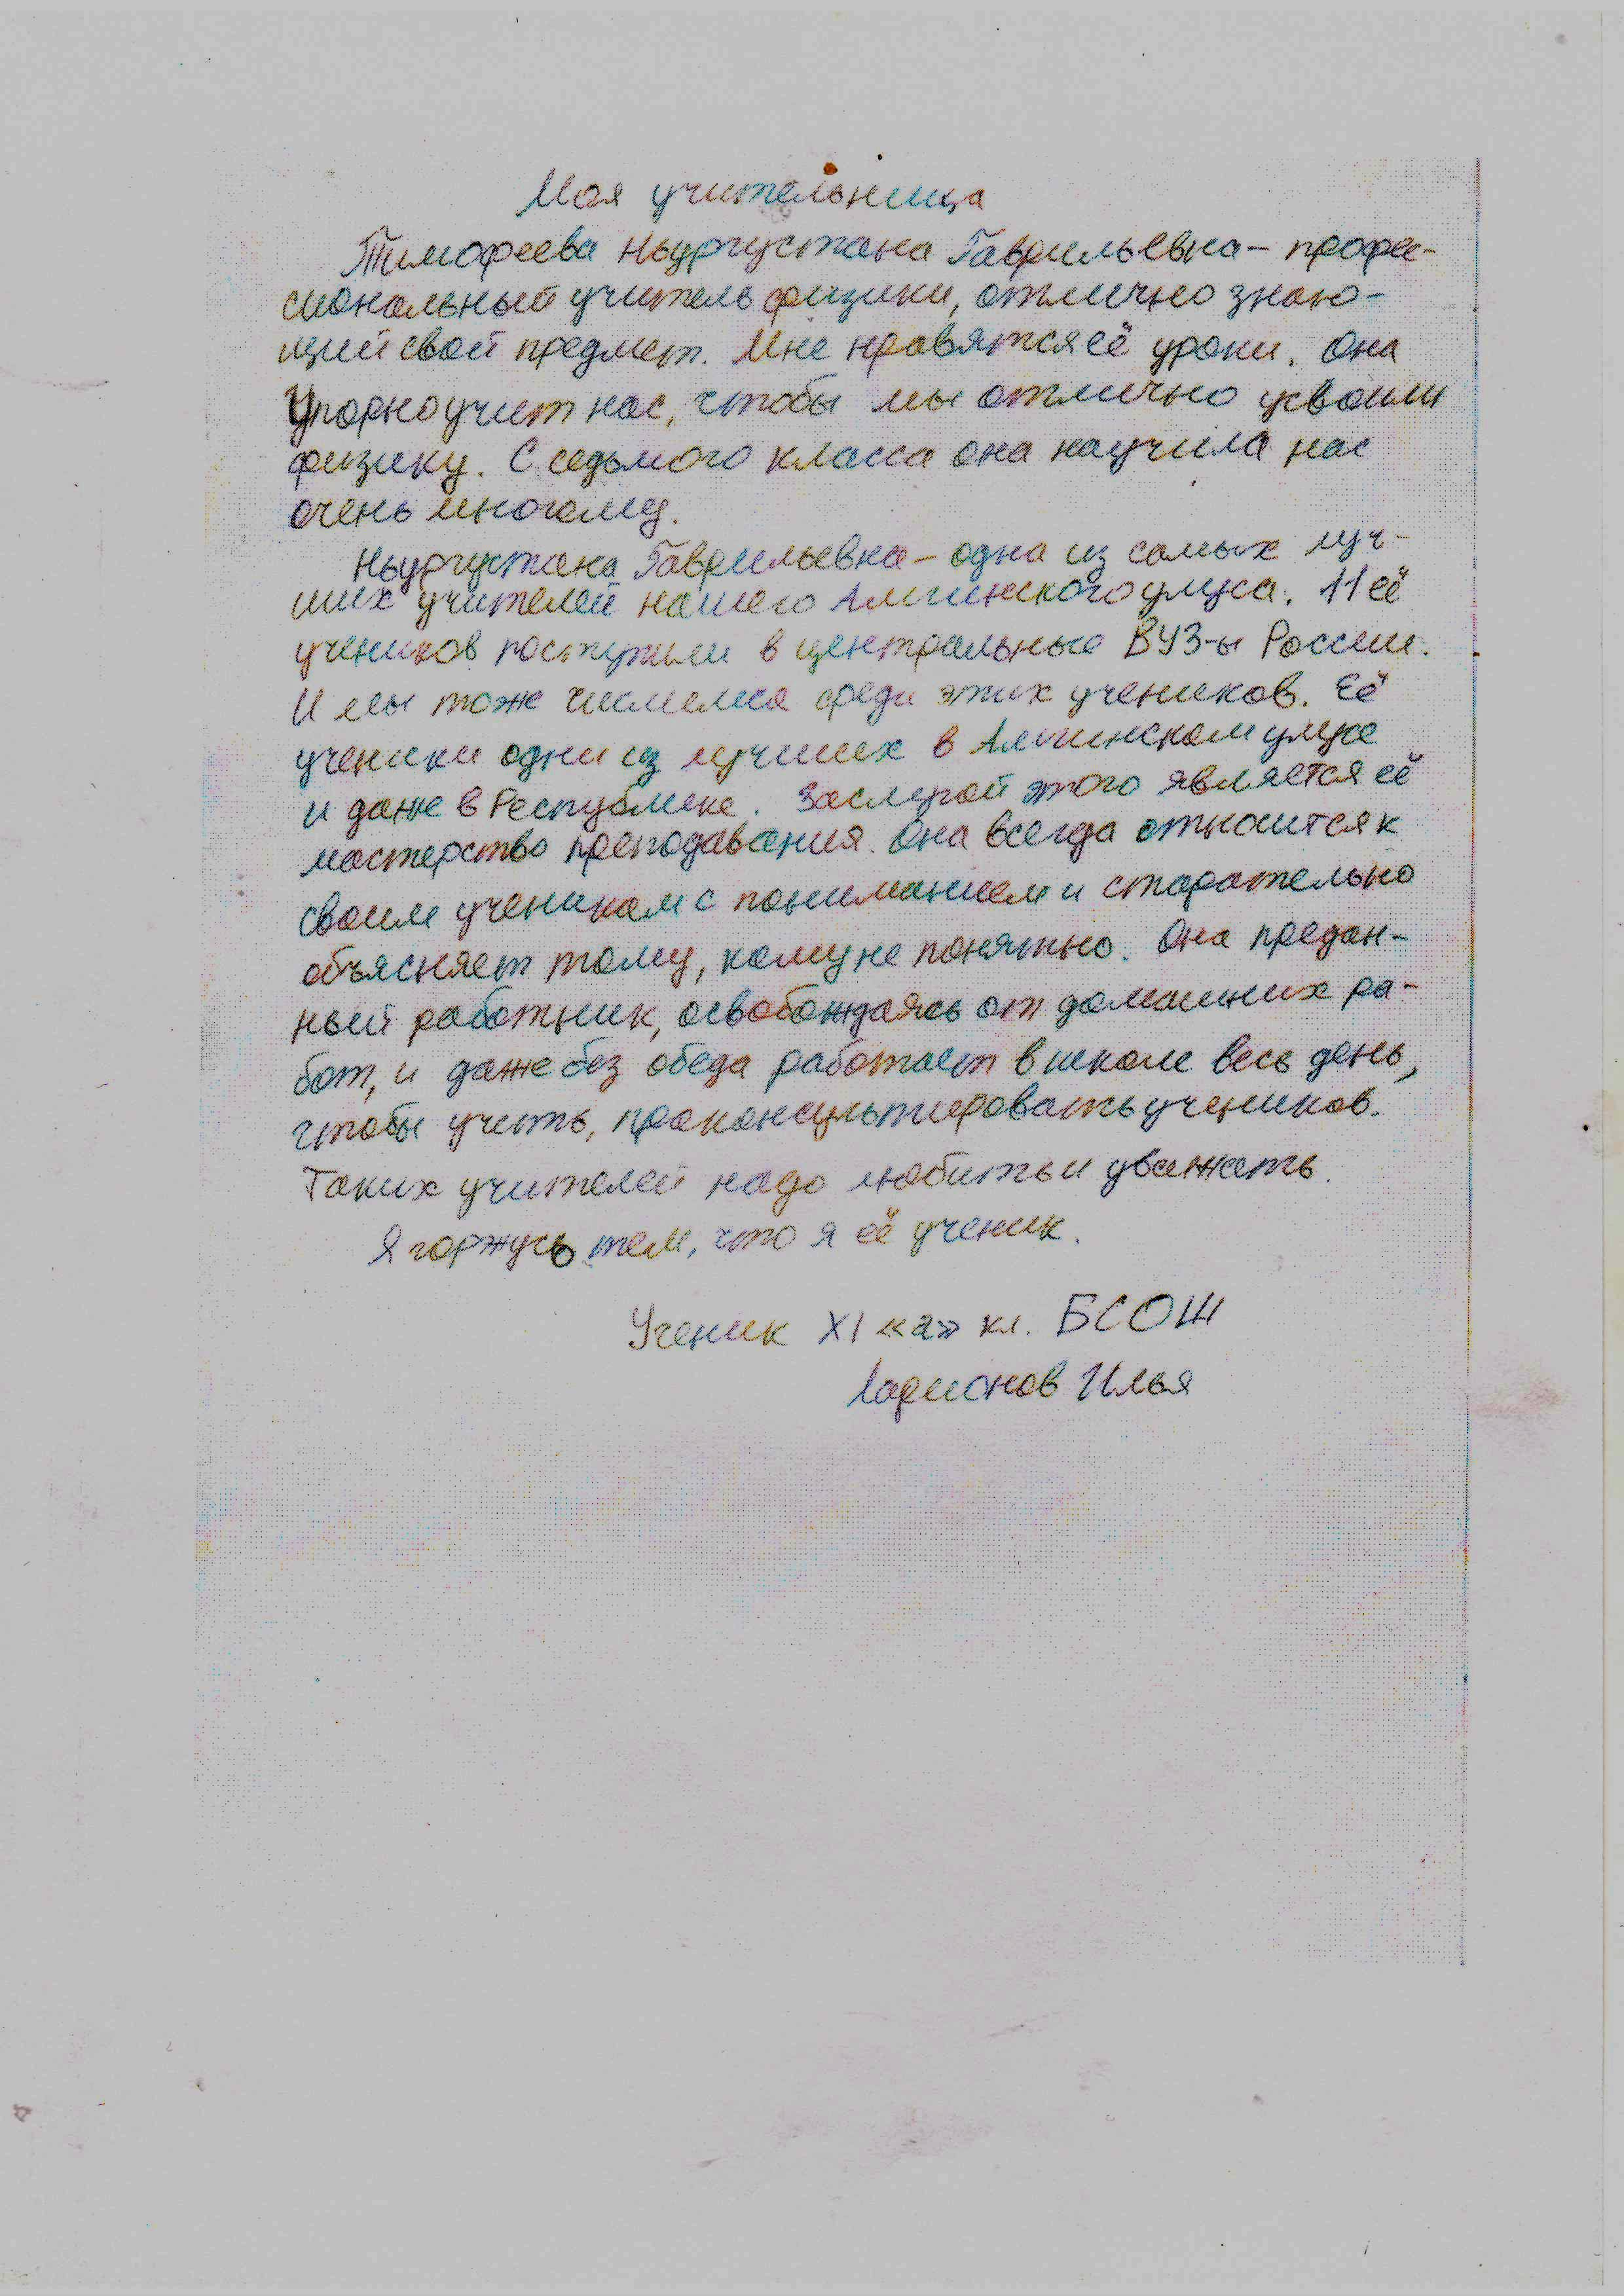 Моя учительница
Тимофеева Ньургустана Гаврильевна – профес-
сиональный учитель физики, отлично знаю-
щий свой предмет. Мне нравятся её уроки. Она
Упорно учит нас, чтобы мы отлично усвоили
физику. С седьмого класса она научила нас
очень многому.
Ньургустана Гаврильевна – одна из самых луч-
ших учителей нашего Амгинского улуса. 11 её
учеников поступили в центральные ВУЗ-ы России.
И мы тоже числимся среди этих учеников. Её
ученики одни из лучших в Амгинском улусе
и даже в Республике. Заслугой этого является её
мастерство преподавания. Она всегда относится к
своим ученикам с пониманием и старательно
объясняет тому, кому не понятно. Она предан-
ный работник, освобождаясь от домашних ра-
бот, и даже без обеда работает в школе весь день,
чтобы учить, проконсультировать учеников.
Таких учителей надо любить и уважать.
Я горжусь тем, что я её ученик.
Ученик XI «а» кл. БСОШ
Ларионов Илья